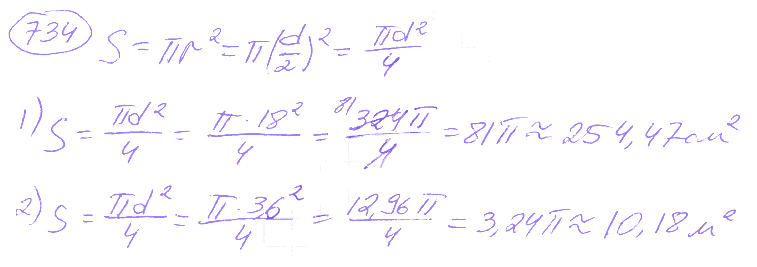 734 S = πr² = π(d/2)² = πd²/4
1) S = πd²/4 = π · 18²/4 = 81 324π/4 = 81π ≈ 254,47 см²
2) S = πd²/4 = π · 3,6²/4 = 12,96π/4 = 3,24π ≈ 10,18 м²